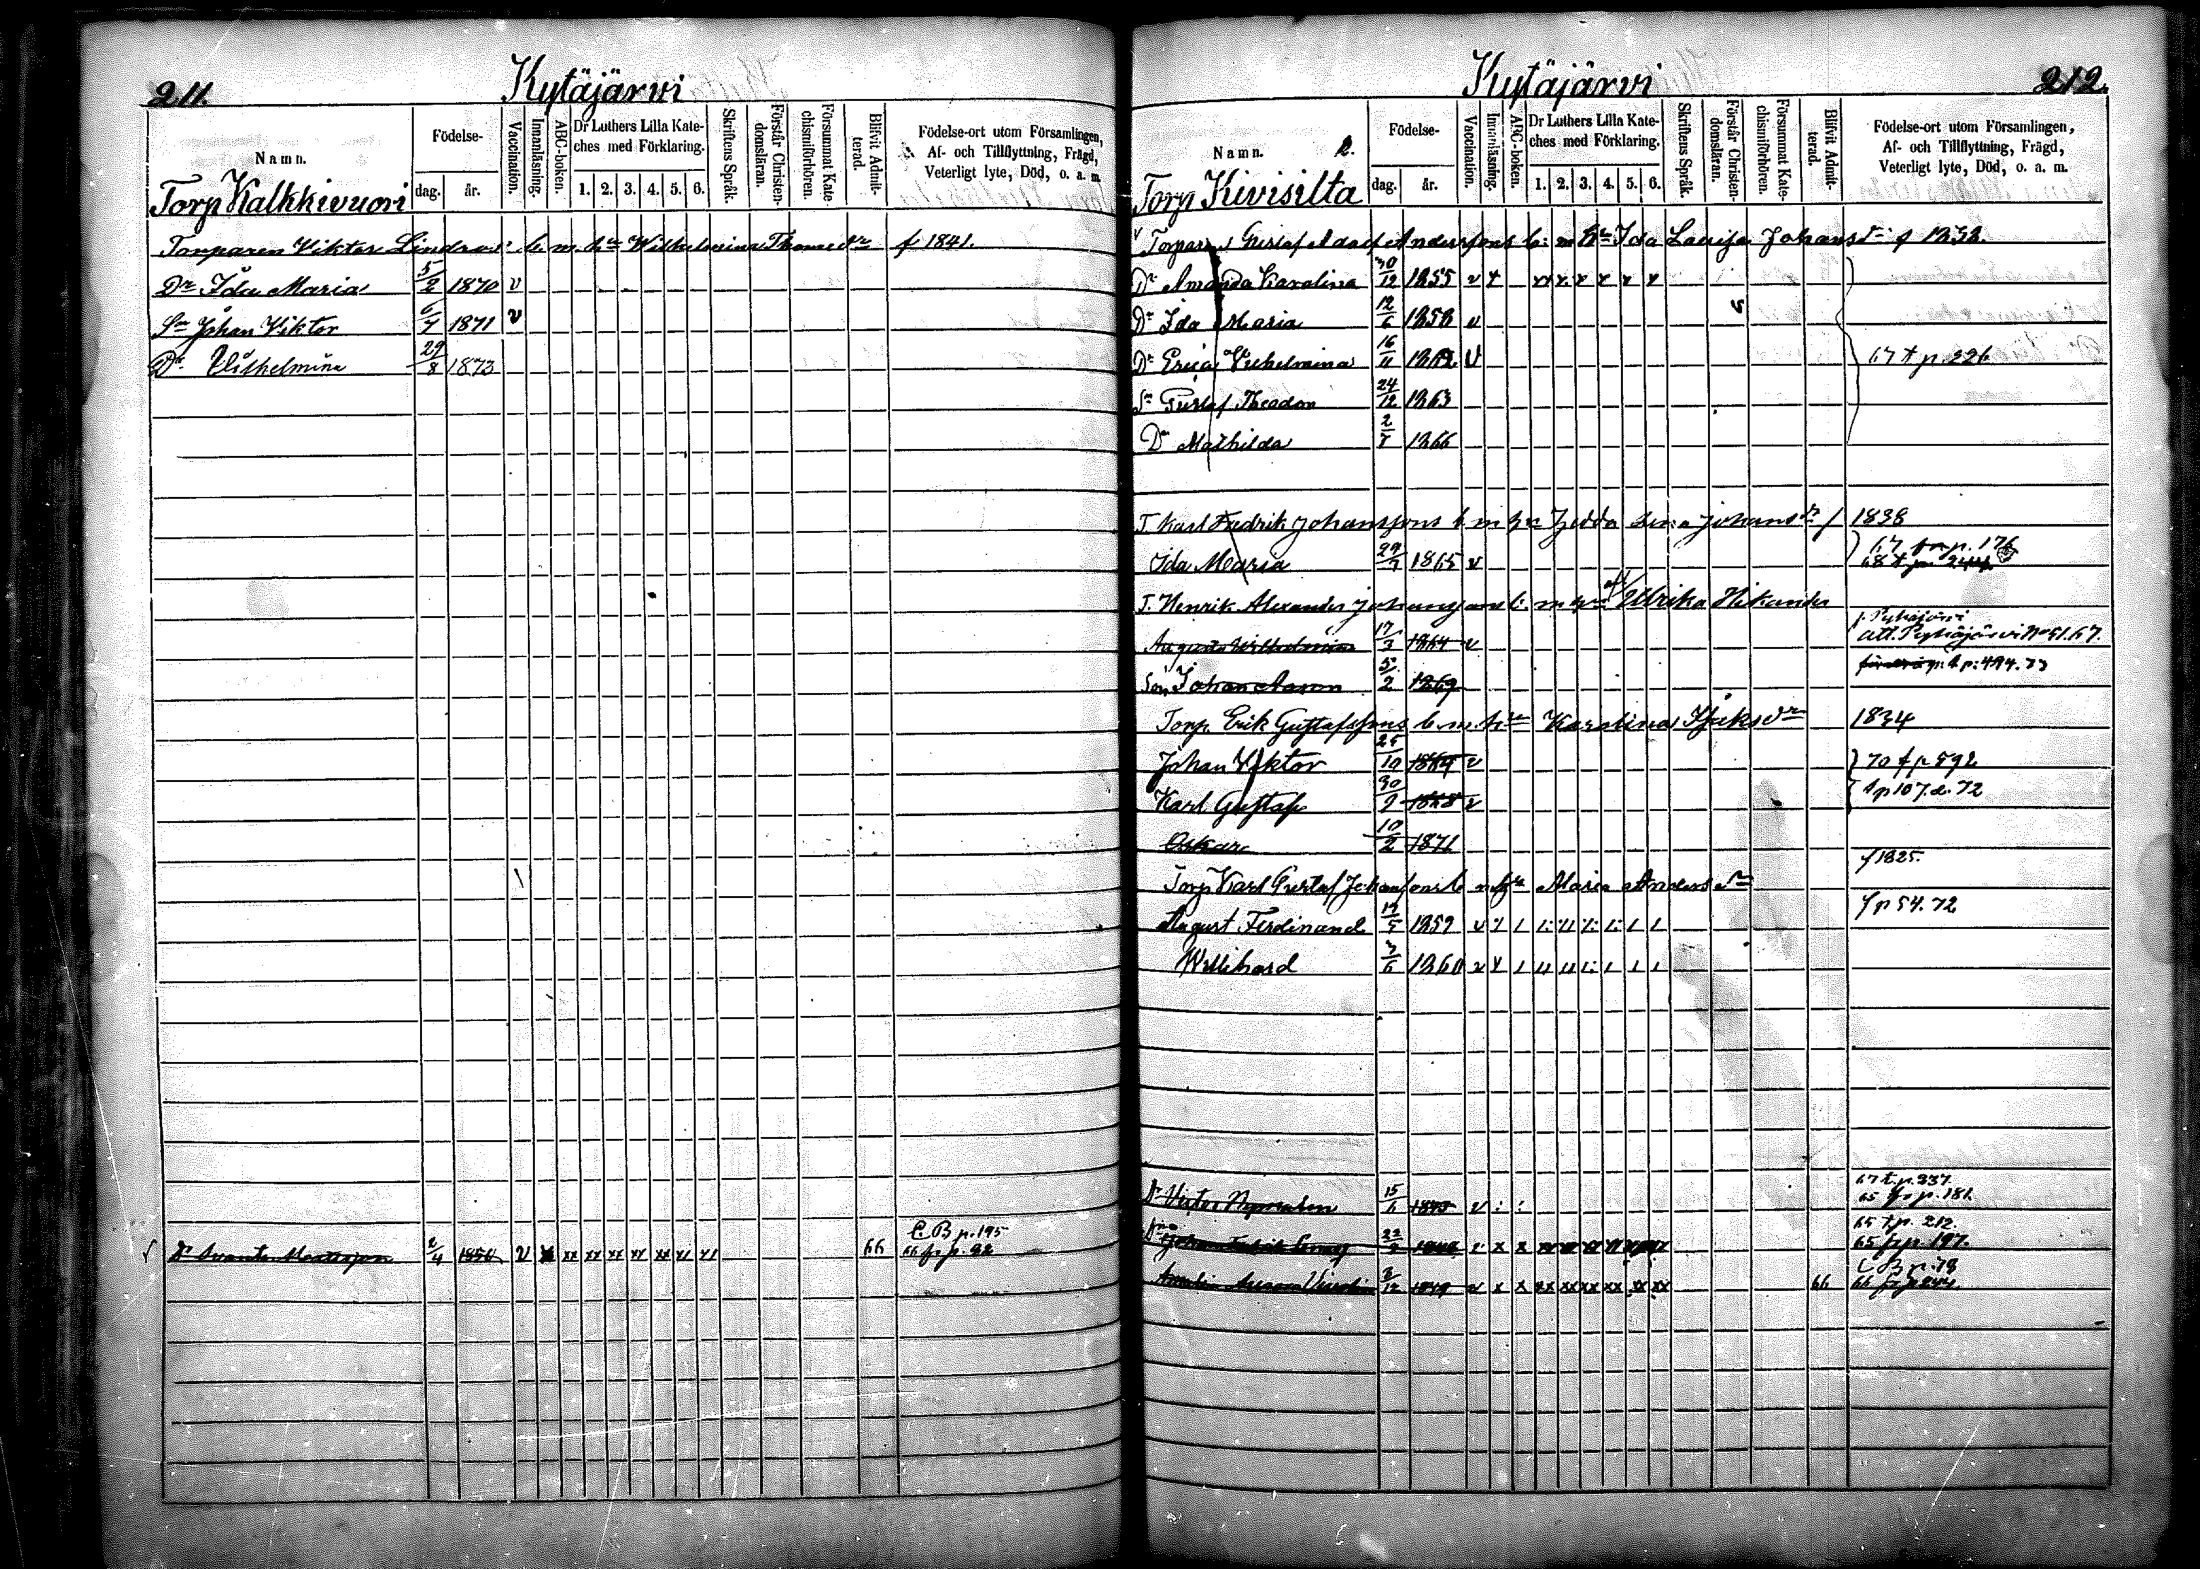 211.
Kytäjärvi
Namn.
Födelse-
dag.
år.
Vaccination.
Innanläsning.
ABC-boken.
Dr Luthers Lilla Kate-
ches med Förklaring.
1. 2. 3. 4. 5. 6.
Skriftens Språk.
Förstår Christen-
domsläran.
Försummat Kate-
chismiförhören.
Blifvit Admit-
terad.
Födelse-ort utom Församlingen,
Af- och Tillflyttning, Frägd,
Veterligt lyte, Död, o. a. m.
Torp Kalkkivuori
Torparen Viktor Lindroos b. m. hu Wilhelmina Thomedr f 1841.
Dr Ida Maria 5/2 1870 v
Sn Johan Viktor 6/7 1871 v
Dr Vilhelmina 29/8 1873
C.B p. 195
Dr Svante Mattsson 2/4 1850 v x xx xx xx xx xx xx x1 66 66 fr p. 92
Kytäjärvi
212.
Namn. 2.
Födelse-
dag.
år.
Vaccination.
Innanläsning.
ABC-boken.
Dr Luthers Lilla Kate-
ches med Förklaring.
1. 2. 3. 4. 5. 6.
Skriftens Språk.
Förstår Christen-
domsläran.
Försummat Kate-
chismiförhören.
Blifvit Admit-
terad.
Födelse-ort utom Församlingen,
Af- och Tillflyttning, Frägd,
Veterligt lyte, Död, o. a. m.
Torp Kivisilta
Torparen Gustaf Adolf Anderssons b. m. hu Ida Lovisa Johansdr f 1832.
Dr Amanda Karolina 30/12 1855 v
Dr Ida Maria 12/6 1858 v
Dr Erica Vilhelmina 16/11 1862 v 67 t p. 226
Sn Gustaf Theodor 24/12 1863
Dr Mathilda 2/7 1866
T. Karl Fredrik Johanssons b m hu Hedda Lena Johansdr f 1838
67 fr p. 176
Ida Maria 29/7 1865 v 68 t p.
T. Henrik Alexander Johanssons b. m hu Ulrika Nikander
f. Pyhäjärvi
Augusta Wilhelmina 17/3 1864 v att. Pyhäjärvi No 51.67.
Son Johan Aaron 5/2 1869 t p: 494. 73
Torp. Erik Gustafssons b m. hu Karolina Isaksdr 1834
Johan Viktor 25/10 1864 v 70 f p 592
Karl Gustaf 30/9 1868 v t p 107. d. 72
Oskar 10/2 1871
Torp Karl Gustaf Johanssons b m hu Maria Andersdr f 1825.
August Ferdinand 19/5 1859 v f p 54. 72
Willihard 3/6 1860 v
67 t. p. 337
Dr Victor Nyman 15/6 1845 v 65 fr p. 181.
65 t p. 212.
22/2 65 f p. 197.
C B p. 78
3/12 1849 v x x xx xx xx xx xx xx 66